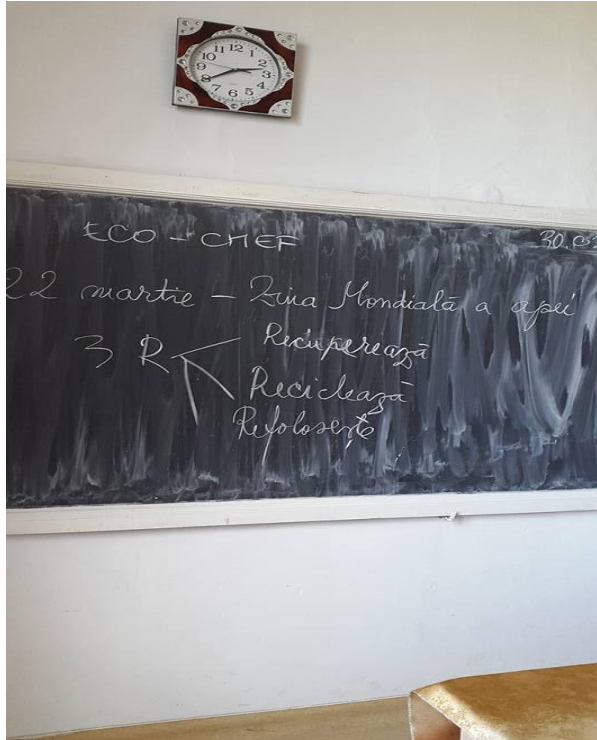 12
1
2
3
4
5
6
7
8
9
10
11
ECO - CHEF 30.03
22 martie - Ziua Mondială a apei
3 R Recuperează
Reciclează
Refolosește